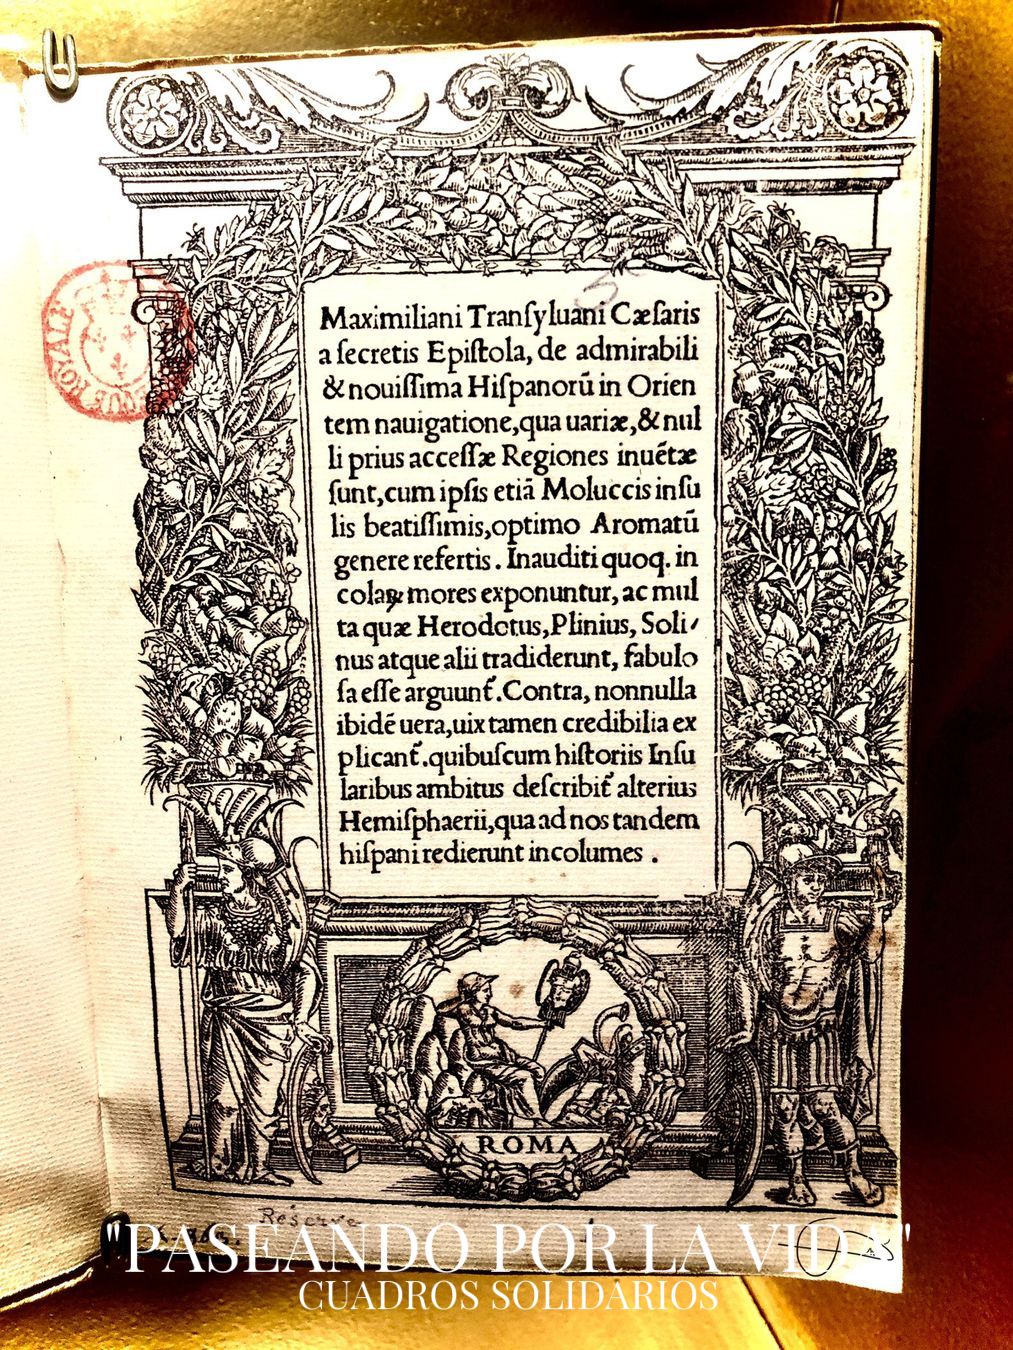 Maximiliani Tranſyluani Cæſaris
a ſecretis Epiſtola, de admirabili
& nouiſſima Hiſpanorū in Orien
tem nauigatione, qua uariæ, & nul
li prius acceſſæ Regiones inuētæ
ſunt, cum ipſis etiā Moluccis inſu
lis beatiſſimis, optimo Aromatū
genere refertis. Inauditi quoq. in
colaꝝ mores exponuntur, ac mul
ta quæ Herodotus, Plinius, Soli⸗
nus atque alii tradiderunt, fabulo
ſa eſſe arguunt᷑. Contra, nonnulla
ibidē uera, uix tamen credibilia ex
plicant᷑. quibuſcum hiſtoriis Inſu
laribus ambitus deſcribit᷑ alterius
Hemiſphaerii, qua ad nos tandem
hiſpani redierunt incolumes.
ROMA
Réserve
"PASEANDO POR LA VIDA"
CUADROS SOLIDARIOS